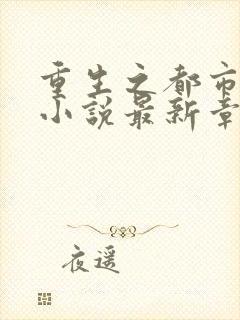 重生之都市
小说最新章
夜遥